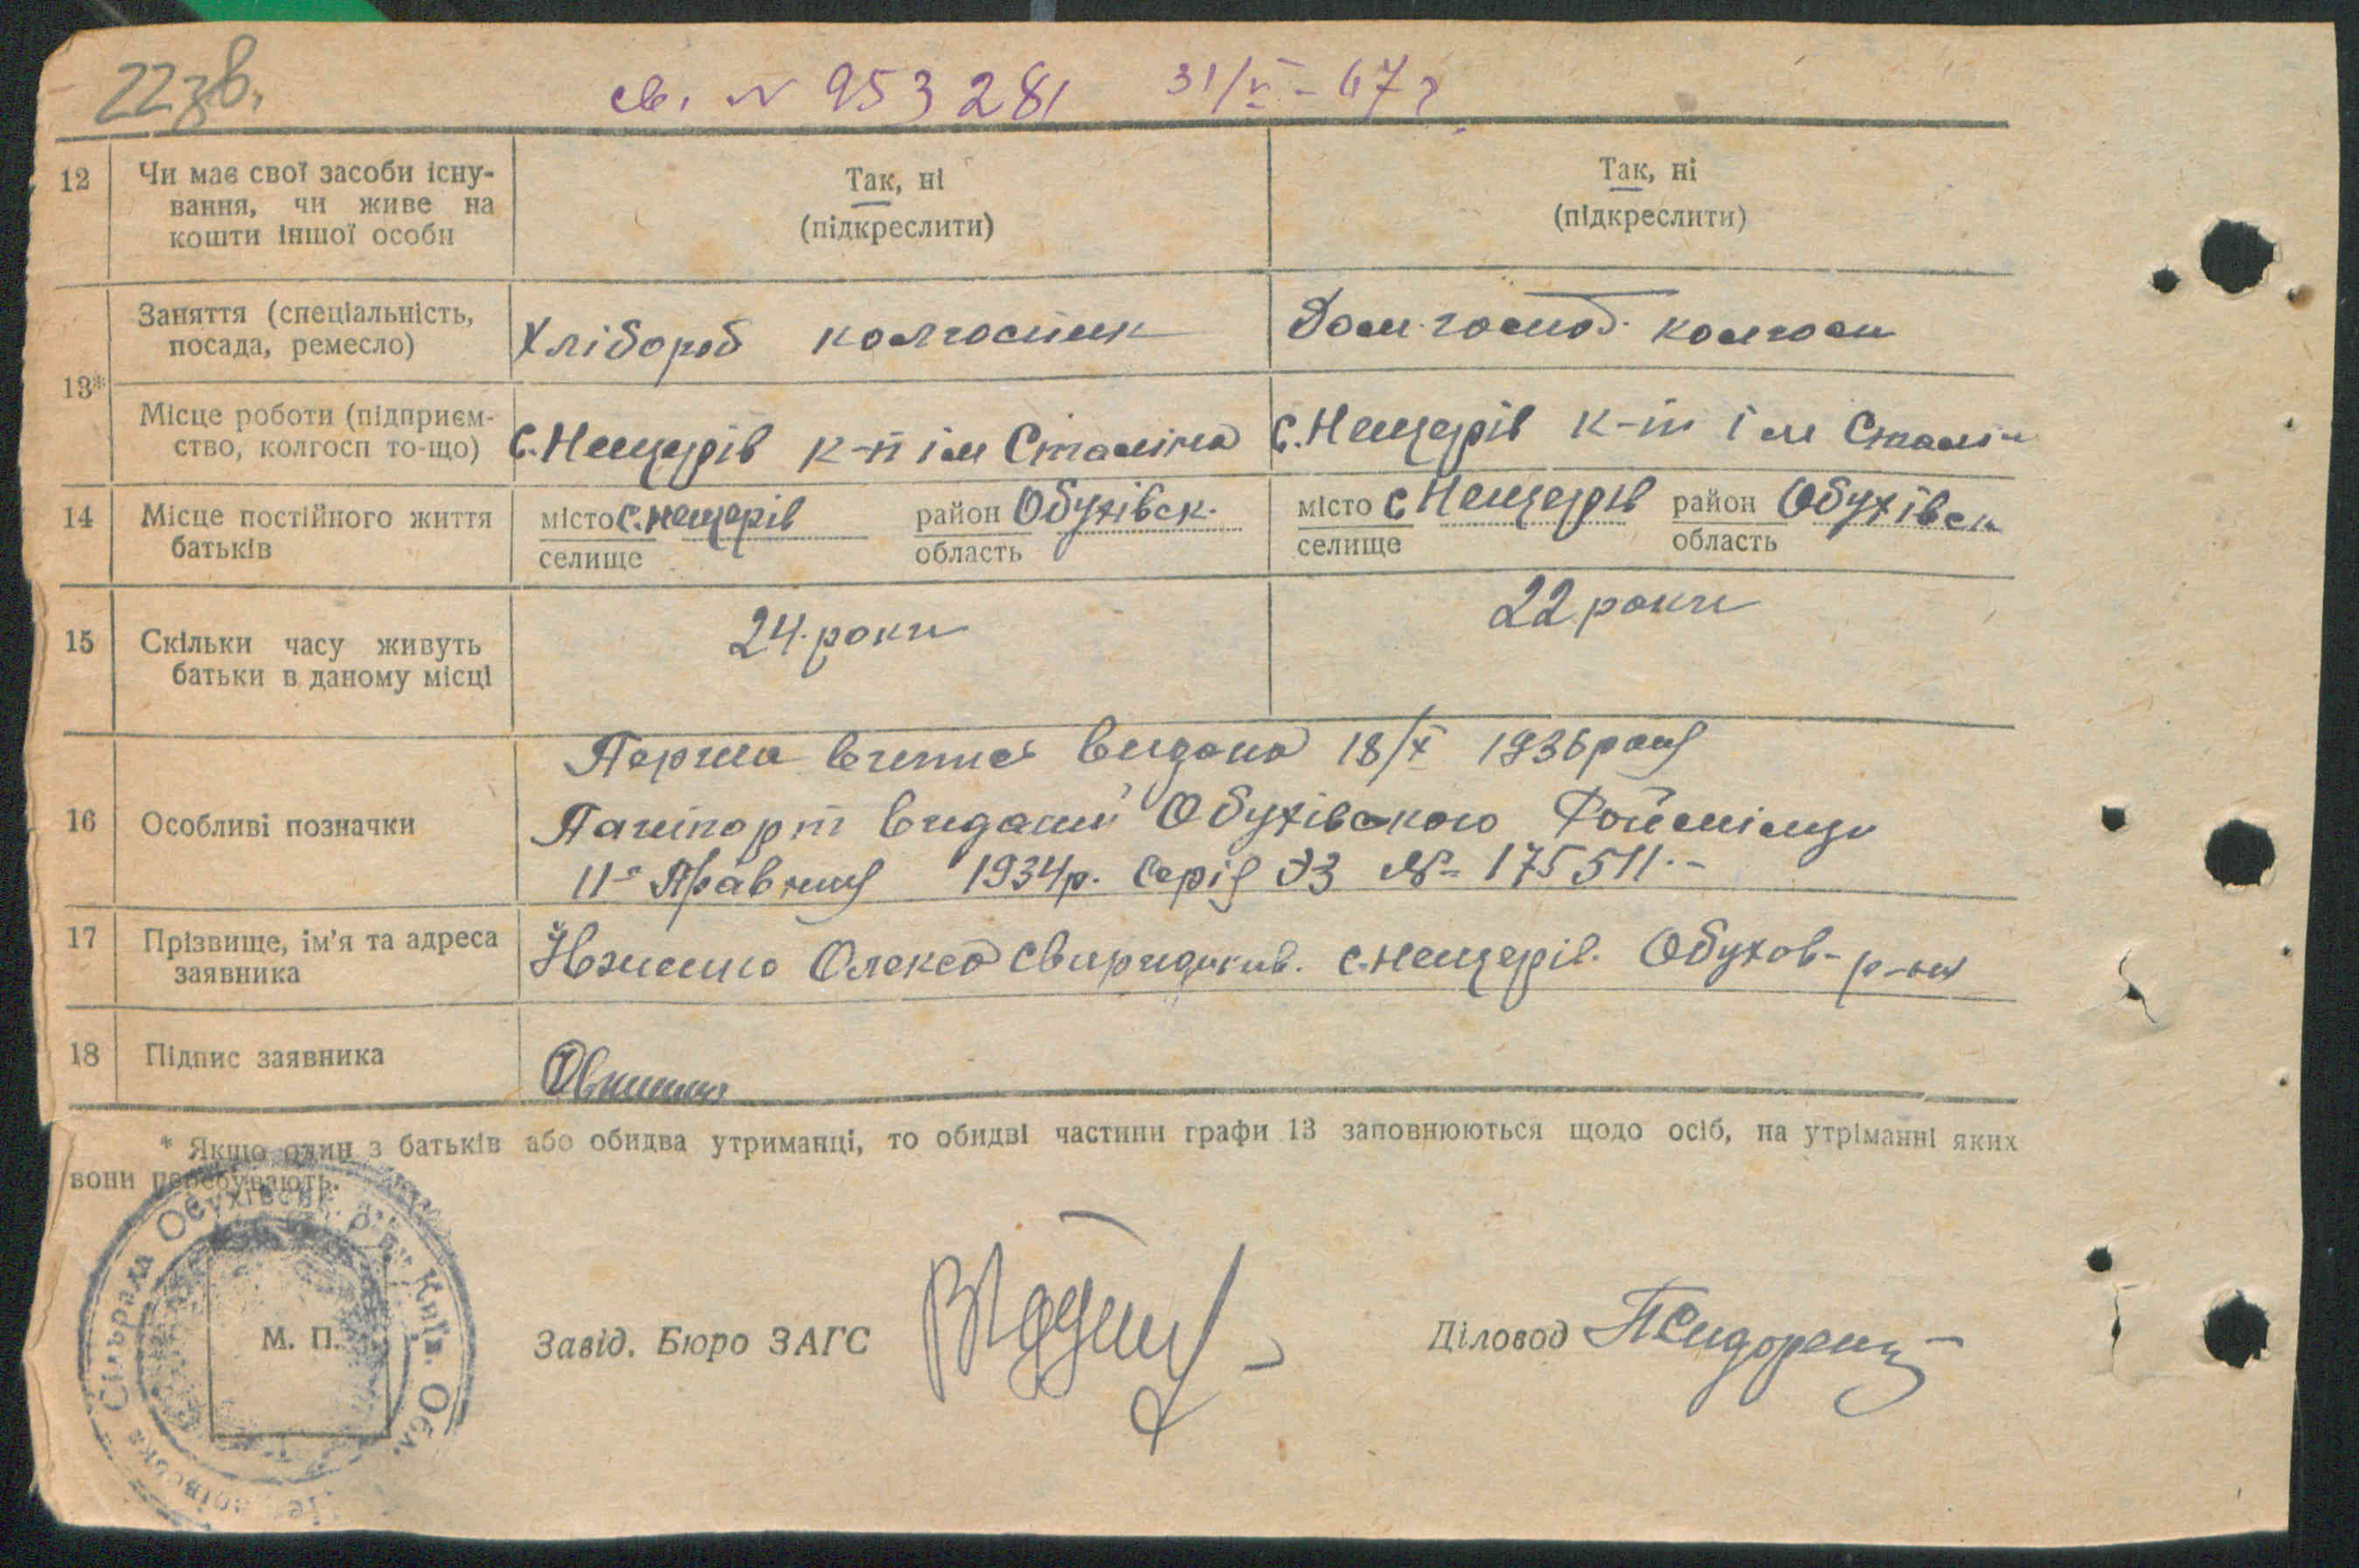 св. № 953281 31/V-67 г.
12 Чи має свої засоби існу- Так, ні Так, ні
вання, чи живе на (підкреслити) (підкреслити)
кошти іншої особи
13* Заняття (спеціальність, Хлібороб колгоспник Дом. господ. колгосп
посада, ремесло)
Місце роботи (підприєм- с. Нещерів к-п ім Сталіна с. Нещерів к-п ім Сталін
ство, колгосп то-що)
14 Місце постійного життя місто с. Нещерів район Обухівськ. місто с Нещерів район Обухівськ
батьків селище область селище область
15 Скільки часу живуть 24 роки 22 роки
батьки в даному місці
Перша видана 18/X 1936 року
16 Особливі позначки Пашпорт виданий Обухівською
11 1934р. Серія ЭЗ № 175511.-
17 Прізвище, ім'я та адреса Олекса с. Нещерів. Обухов- р-на
заявника
18 Підпис заявника
* Якщо один з батьків або обидва утриманці, то обидві частини графи 13 заповнюються щодо осіб, на утріманні яких
вони перебувають.
Сільрада Обухівськ. р-ну Київ. Обл.
М. П. Завід. Бюро ЗАГС Діловод ПСидоренко